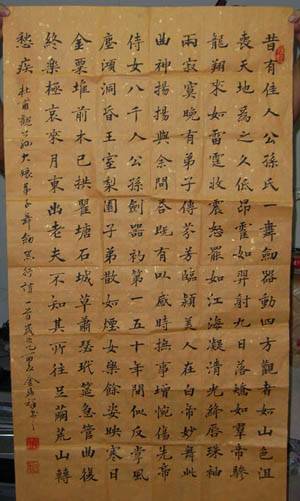 昔有佳人公孫氏一舞劍器動四方觀者如山色沮
喪天地為之久低昂㸌如羿射九日落矯如羣帝驂
龍翔來如雷霆收震怒罷如江海凝清光絳唇珠袖
兩寂寞晚有弟子傳芬芳臨潁美人在白帝妙舞此
曲神揚揚與余問答既有以感時撫事增惋傷先帝
侍女八千人公孫劍器初第一五十年間似反掌風
塵澒洞昏王室梨園子弟散如煙女樂餘姿映寒日
金粟堆前木已拱瞿塘石城草蕭瑟玳筵急管曲復
終樂極哀來月東出老夫不知其所往足繭荒山轉
愁疾 杜甫觀公孫大娘弟子舞劍器行詩一首歲次